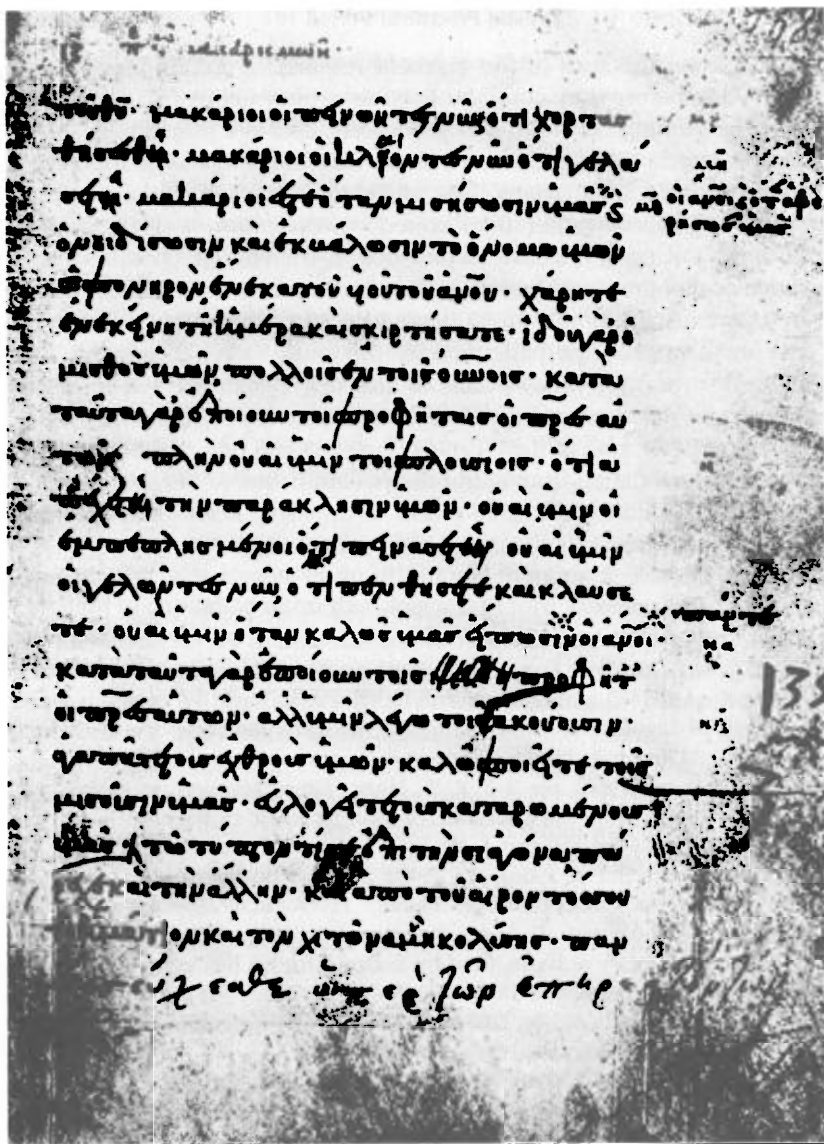 μακαρισμῶν
τοῦ θῦ. μακάριοι οἱ πεινῶντες νῦν ὅτι χορτασ
θήσεσθε. μακάριοι οἱ κλαίοντες νῦν ὅτι γελά
σετε. μακάριοί ἐστε ὅταν μισήσωσιν ὑμᾶς
οἱ ἄνοι καὶ ὅταν ἀφο
ρίσωσιν ὑμᾶς
ὀνειδίσωσιν καὶ ἐκβάλωσιν τὸ ὄνομα ὑμῶν
ὡς πονηρὸν ἕνεκα τοῦ υἱοῦ τοῦ ἀνοῦ. χάρητε
ἐν ἐκείνῃ τῇ ἡμέρᾳ καὶ σκιρτήσατε. ἰδοὺ γὰρ ὁ
μισθὸς ὑμῶν πολλοὶς ἐν τοῖς οὐνοις. κατὰ
ταῦτα γὰρ ἐποίουν τοῖς προφήταις οἱ πρ̅ες αὐ
τῶν πλὴν οὐαὶ ὑμῖν τοῖς πλουσίοις. ὅτι ἀ
πέχετε τὴν παράκλησιν ὑμῶν. οὐαὶ ὑμῖν οἱ
ἐμπεπλησμένοι ὅτι πεινάσετε οὐαὶ ὑμῖν
οἱ γελῶντες νῦν ὅτι πενθήσετε καὶ κλαύσε
τε. οὐαὶ ὑμῖν ὅταν καλῶς ὑμᾶς εἴπωσιν οἱ ἄνοι.
πάντες
κατὰ ταῦτα γὰρ ἐποίουν τοῖς προφητ
οἱ πρ̅ες αὐτῶν. ἀλλ ὑμῖν λέγω τοῖς ἀκούουσιν.
ἀγαπᾶτε τοὺς ἐχθροὺς ὑμῶν. καλῶς ποιεῖτε τοῖς
μισοῦσιν ὑμᾶς. εὐλογεῖτε τοὺς καταρωμένους
ὑμᾶς. τῷ τύπτοντί σε ἐπὶ τὴν σιαγόνα πά
καὶ τὴν ἄλλην. καὶ ἀπὸ τοῦ αἴροντός σου
ἱμάτιον καὶ τὸν χιτῶνα μὴ κολύσης. παν
εύχεσθε ὑπὲρ τῶν ἐπηρ